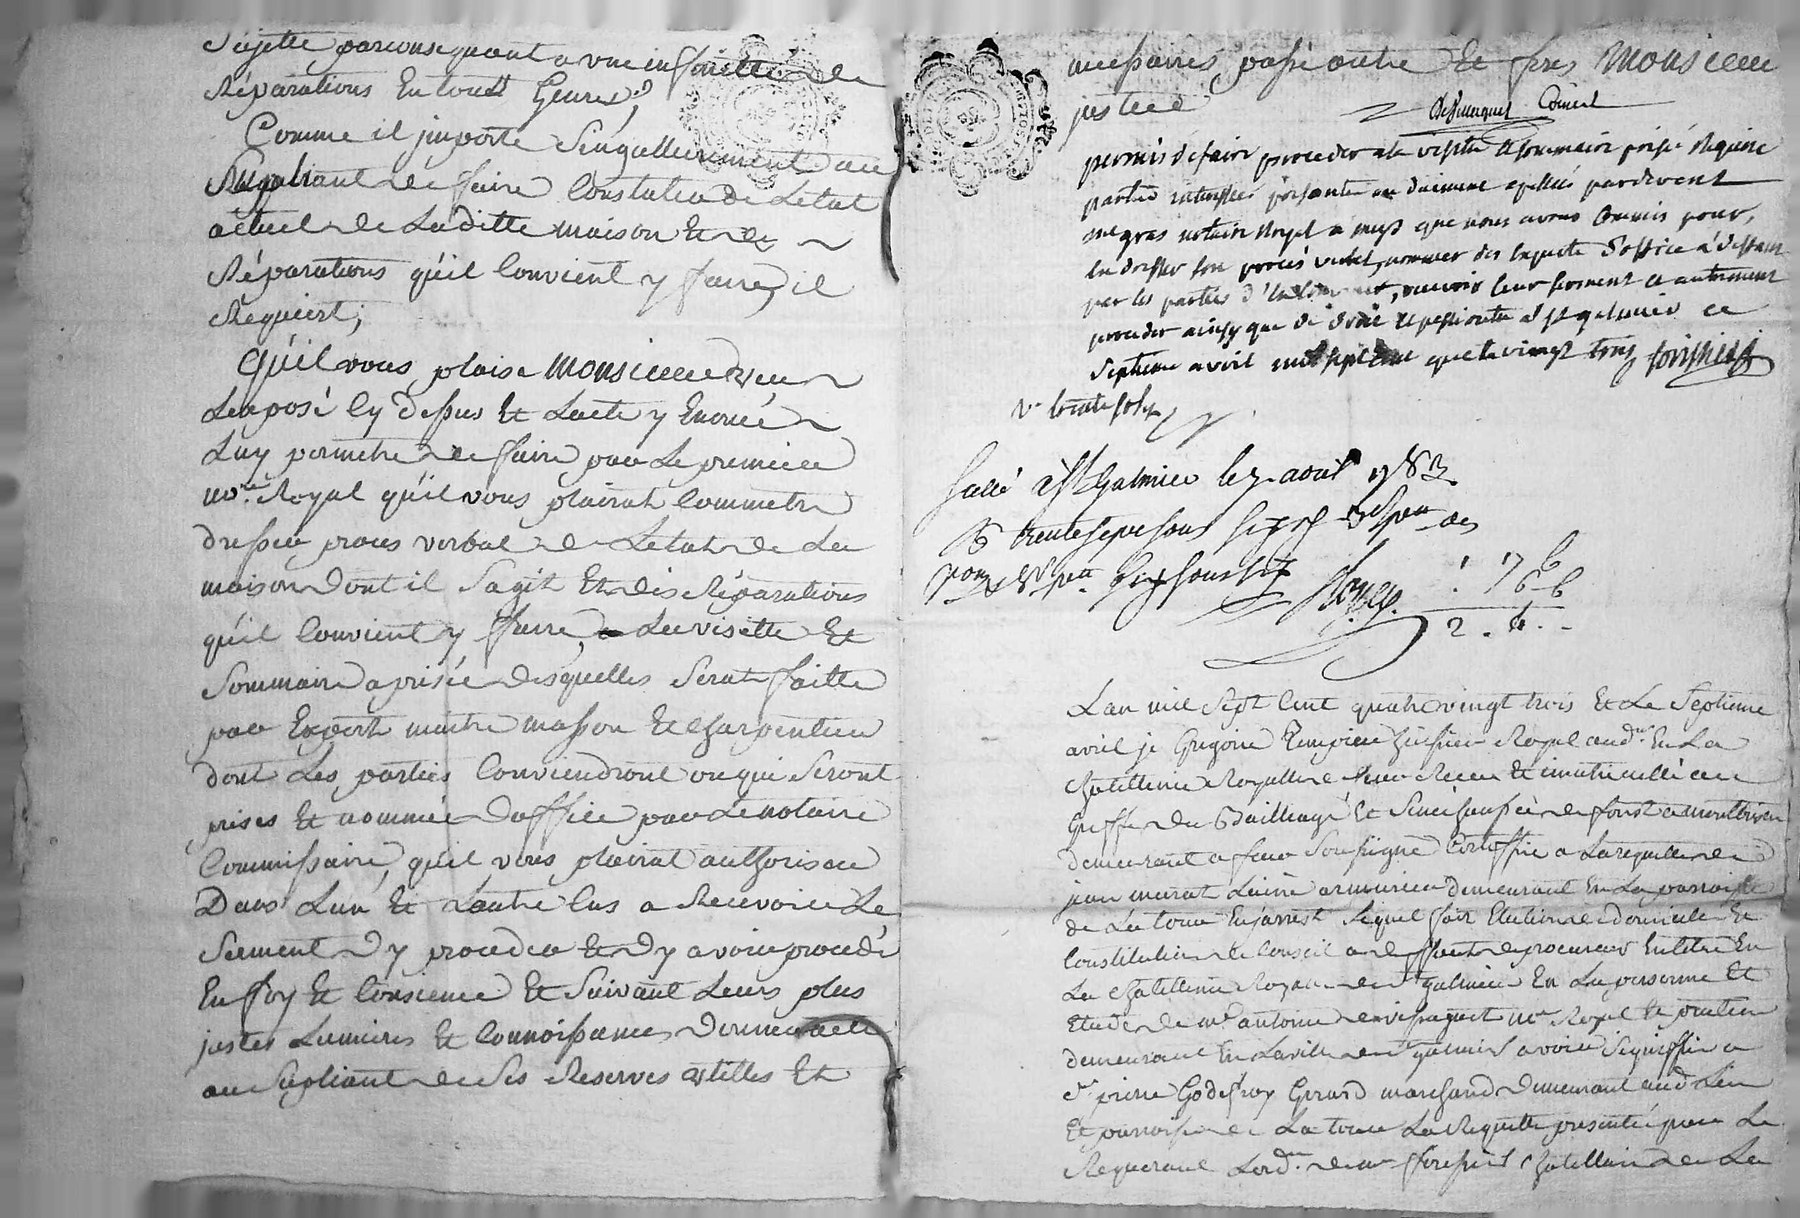 Sujette parconsequant a une infinitte de
Réparations En tout Genre;
Comme il jmporte Singullierement au
Supliant de faire Constater de Letat
actuel de Laditte maison Et des
Réparations qu'il Convient y faire, il
Requiert;
Qu'il vous plaise Monsieur veu
Lexposé Cy dessus Et Lacte y Enoncé
Luy permetre de faire par Le premier
no.re Royal qu'il vous plairat Commetre
dresser proces verbal de Letat de La
maison Dont il Sagit Et des Réparations
qu'il Convient y faire, La visitte Et
Sommaire aprisée desquelles Serat faitte
par Expert maitre masson Et Charpentier
dont Les parties Conviendront ou qui Seront
prises Et nommée Doffice par Le notaire
Commissaire, qu'il vous plairat authoriser
Dans Lun Et Lautre Cas a Recevoir Le
Serment Dy proceder Et Dy avoir procedé
En foy Et Consience Et Suivant Leurs plus
justes Lumieres Et Connoissances Donner acte
au Supliant de Ses Reserves utilles Et
necessaires, passé outre Et ferés Monsieur
justice
Conseil
permis de faire proceder a la visite et sommaire prisé requise
parties interessées presentes ou duement apellés pardevant
me gras notaire royal a que nous avons Commis pour
en dresser son procés verbal, nommer des experts d'office a deffaut
par les parties d'en convenir, recevoir leur serment et autrement
proceder ainsy que de droit a st galmier ce
Septieme avril mil sept cent quatre vingt trois
Sellé a St Galmier le 7 avril 1783
trente sept sous six
six sous six
1 17 6
6 6
2 . 4 . -
Lan mil Sept Cent quatre vingt trois Et Le Septieme
avril je Gregoire huissier Royal En La
Chatellenie Royalle de Reçu Et immatriculé au
Greffe du Bailliage Et Senechaussée de forest a montbrison
demeurant a Soussigné Certiffie a La requette de
jean murat armurier demeurant En La parroisse
de La tour Enjarrest Lequel fait Election de domicile Et
Constitution de Conseil a deffaut de procureur En titre En
La Chatellenie Royalle de St galmier En La personne Et
Etude de me antoine no.re Royal Et praticien
demeurant En La ville de St galmier avoir Signiffié a
Sr pierre Godefroy Gerard marchand Demeurant aud. Lieu
Et parroisse de La tour La Requette presentée par Le
Requerant Chatellain de La